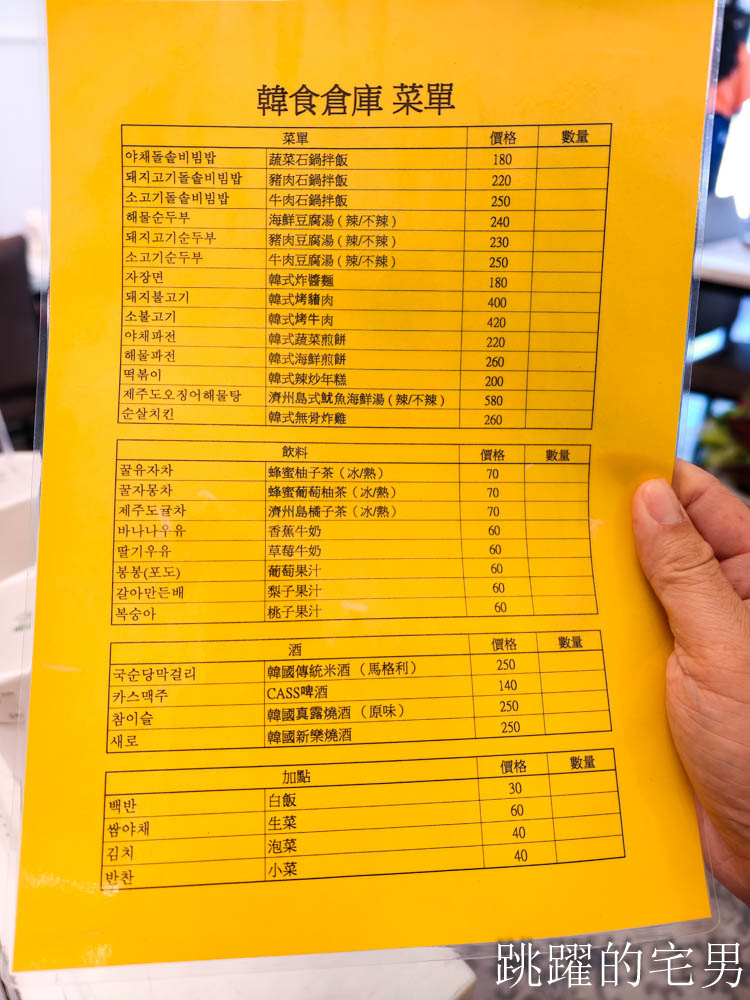 韓食倉庫 菜單
菜單 價格 數量
야채돌솥비빔밥 蔬菜石鍋拌飯 180
돼지고기돌솥비빔밥 豬肉石鍋拌飯 220
소고기돌솥비빔밥 牛肉石鍋拌飯 250
해물순두부 海鮮豆腐湯 ( 辣/不辣 ) 240
돼지고기순두부 豬肉豆腐湯 ( 辣/不辣 ) 230
소고기순두부 牛肉豆腐湯 ( 辣/不辣 ) 250
자장면 韓式炸醬麵 180
돼지불고기 韓式烤豬肉 400
소불고기 韓式烤牛肉 420
야채파전 韓式蔬菜煎餅 220
해물파전 韓式海鮮煎餅 260
떡볶이 韓式辣炒年糕 200
제주도오징어해물탕 濟州島式魷魚海鮮湯 ( 辣/不辣 ) 580
순살치킨 韓式無骨炸雞 260
飲料 價格 數量
꿀유자차 蜂蜜柚子茶 ( 冰/熱 ) 70
꿀자몽차 蜂蜜葡萄柚茶 ( 冰/熱 ) 70
제주도귤차 濟州島橘子茶 ( 冰/熱 ) 70
바나나우유 香蕉牛奶 60
딸기우유 草莓牛奶 60
봉봉(포도) 葡萄果汁 60
갈아만든배 梨子果汁 60
복숭아 桃子果汁 60
酒 價格 數量
국순당막걸리 韓國傳統米酒 ( 馬格利 ) 250
카스맥주 CASS啤酒 140
참이슬 韓國真露燒酒 ( 原味 ) 250
새로 韓國新樂燒酒 250
加點 價格 數量
백반 白飯 30
쌈야채 生菜 60
김치 泡菜 40
반찬 小菜 40
跳躍的宅男